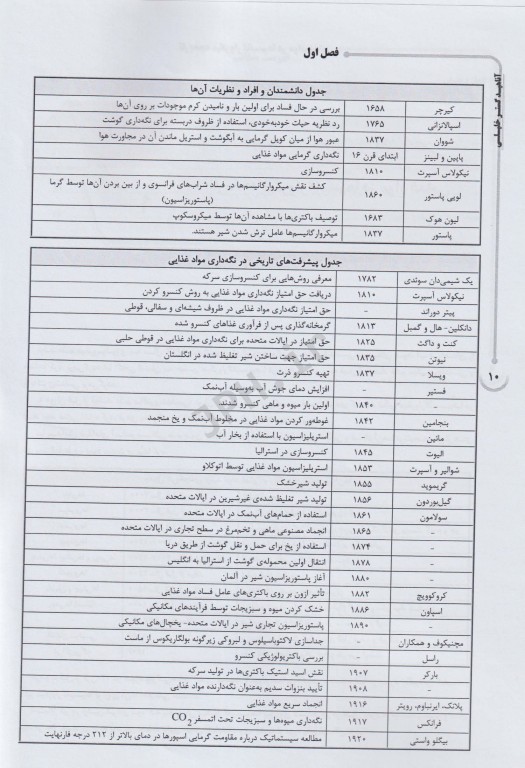 فصل اول
آناهید گستر خلیلی
۱۰
جدول دانشمندان و افراد و نظریات آن‌ها
کیرچر ۱۶۵۸ بررسی در حال فساد برای اولین بار و نامیدن کرم موجودات بر روی آن‌ها
اسپالانزانی ۱۷۶۵ رد نظریه حیات خودبه‌خودی، استفاده از ظروف دربسته برای نگه‌داری گوشت
شووان ۱۸۳۷ عبور هوا از میان کویل گرمایی به آبگوشت و استریل ماندن آن در مجاورت هوا
پاپین و لبینز ابتدای قرن ۱۶ نگه‌داری گرمایی مواد غذایی
نیکولاس آسپرت ۱۸۱۰ کنسروسازی
لویی پاستور ۱۸۶۰ کشف نقش میکروارگانیسم‌ها در فساد شراب‌های فرانسوی و از بین بردن آن‌ها توسط گرما
(پاستوریزاسیون)
لیون هوک ۱۶۸۳ توصیف باکتری‌ها با مشاهده آن‌ها توسط میکروسکوپ
پاستور ۱۸۳۷ میکروارگانیسم‌ها عامل ترش شدن شیر هستند.
جدول پیشرفت‌های تاریخی در نگه‌داری مواد غذایی
یک شیمی‌دان سوئدی ۱۷۸۲ معرفی روش‌هایی برای کنسروسازی سرکه
نیکولاس آسپرت ۱۸۱۰ دریافت حق امتیاز نگه‌داری مواد غذایی به روش کنسرو کردن
پیتر دوراند - حق امتیاز نگه‌داری مواد غذایی در ظروف شیشه‌ای و سفالی، قوطی
دانکلین- هال و گمبل ۱۸۱۳ گرمخانه‌گذاری پس از فرآوری غذاهای کنسرو شده
کنت و داگت ۱۸۲۵ حق امتیاز در ایالات متحده برای نگه‌داری مواد غذایی در قوطی حلبی
نیوتن ۱۸۳۵ حق امتیاز جهت ساختن شیر تغلیظ شده در انگلستان
ویسلا ۱۸۳۷ تهیه کنسرو ذرت
فستیر - افزایش دمای جوش آب به‌وسیله آب‌نمک
- ۱۸۴۰ اولین بار میوه و ماهی کنسرو شدند
بنجامین ۱۸۴۲ غوطه‌ور کردن مواد غذایی در مخلوط آب‌نمک و یخ منجمد
ماتین - استریلیزاسیون با استفاده از بخار آب
الیوت ۱۸۴۵ کنسروسازی در استرالیا
شوالیر و آسپرت ۱۸۵۳ استریلیزاسیون مواد غذایی توسط اتوکلاو
گریموید ۱۸۵۵ تولید شیرخشک
گیل‌بوردون ۱۸۵۶ تولید شیر تغلیظ شده‌ی غیرشیرین در ایالات متحده
سولامون ۱۸۶۱ استفاده از حمام‌های آب‌نمک در ایالات متحده
- ۱۸۶۵ انجماد مصنوعی ماهی و تخم‌مرغ در سطح تجاری در ایالات متحده
- ۱۸۷۴ استفاده از یخ برای حمل و نقل گوشت از طریق دریا
- ۱۸۷۸ انتقال اولین محموله‌ی گوشت از استرالیا به انگلیس
- ۱۸۸۰ آغاز پاستوریزاسیون شیر در آلمان
کروکوویچ ۱۸۸۲ تأثیر ازون بر روی باکتری‌های عامل فساد مواد غذایی
اسپاون ۱۸۸۶ خشک کردن میوه و سبزیجات توسط فرآیندهای مکانیکی
- ۱۸۹۰ پاستوریزاسیون تجاری شیر در ایالات متحده- یخچال‌های مکانیکی
مچنیکوف و همکاران - جداسازی لاکتوباسیلوس و لبروکی زیرگونه بولگاریکوس از ماست
راسل - بررسی باکتریولوژیکی کنسرو
بارکر ۱۹۰۷ نقش اسید استیک باکتری‌ها در تولید سرکه
- ۱۹۰۸ تأیید بنزوات سدیم به‌عنوان نگه‌دارنده مواد غذایی
پلانک، ایرنباوم، رویتر ۱۹۱۶ انجماد سریع مواد غذایی
فرانکس ۱۹۱۷ نگه‌داری میوه‌ها و سبزیجات تحت اتمسفر CO2
بیگلو واستی ۱۹۲۰ مطالعه سیستماتیک درباره مقاومت گرمایی اسپورها در دمای بالاتر از ۲۱۲ درجه فارنهایت